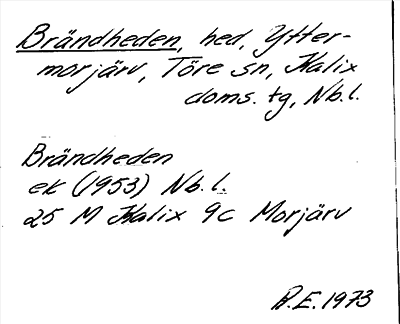 Brändheden, hed, Ytter-
morjärv, Töre sn, Kalix
doms. tg, Nb. l.
Brändheden
ek (1953) Nb. l.
25 M Kalix 9c Morjärv
R.E. 1973